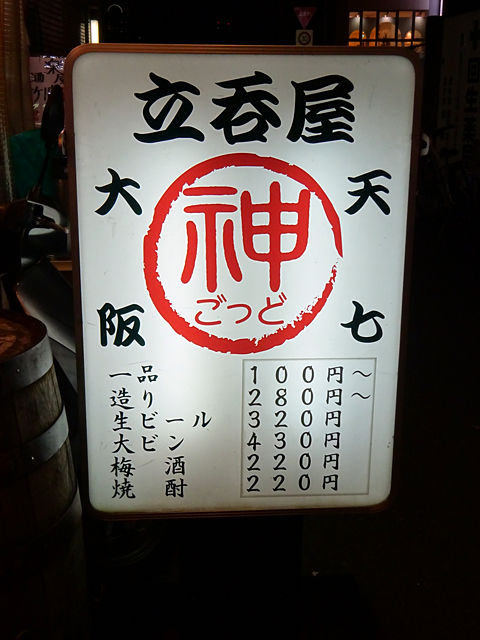 立呑屋
大阪
天七
神
ごっど
一品 100円～
造り 280円～
生ビール 320円
大ビン 430円
梅酒 220円
焼酎 220円